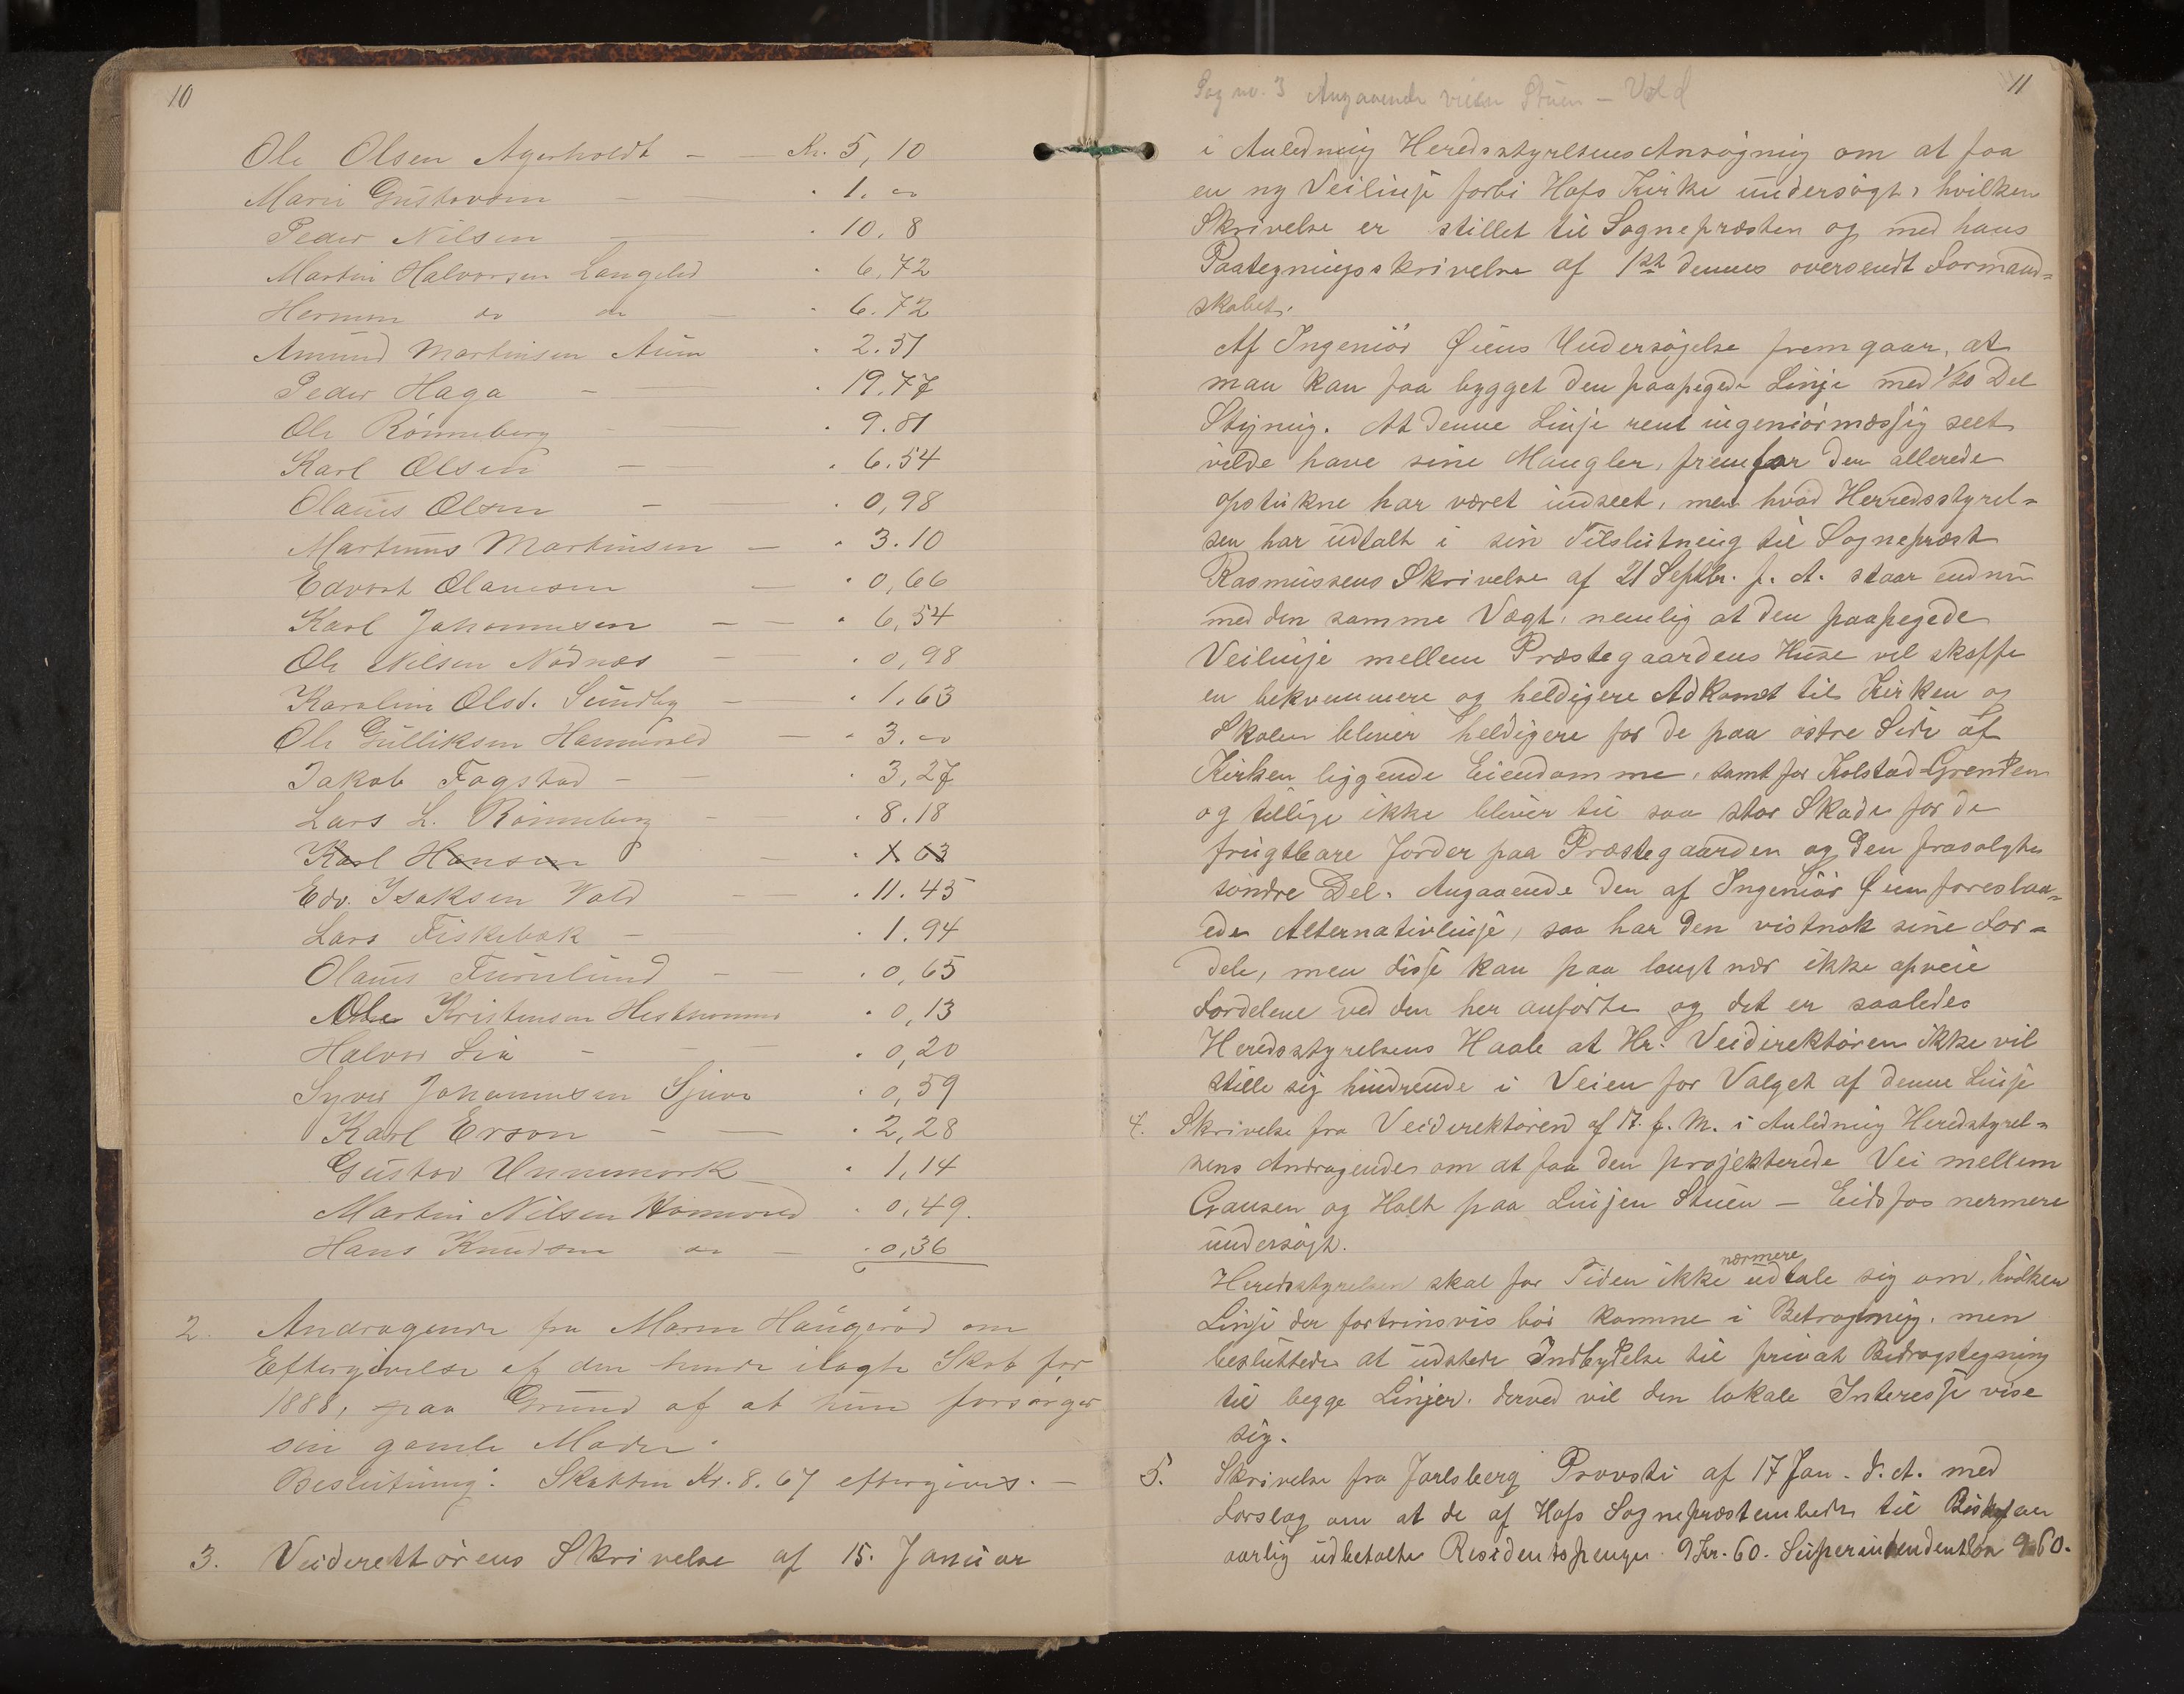 10
Ole Olsen Agerholdt — — Kr. 5,10
Marie Gustavsen — " 1.00
Peder Nilsen — " 10.8
Martin Halvorsen Langelid " 6,72
Herman do do — " 6.72
Amund Martinsen " 2.51
Peder Haga — — " 19.77
Ole Rönneberg — " 9.81
Karl Olsen — " 6.54
Olaus Olsen — " 0,98
Martinus Martinsen — " 3.10
Edvart Olausen — " 0,66
Karl Johannesen — — " 6,54
Ole Nilsen Nödnæs — " 0,98
Karoline Olsd. Sundby — " 1,63
Ole Gulliksen — " 3.00
Jakob Fagstad — — " 3,27
Lars L. Rönneberg — " 8.18
Karl Hansen — " 1.63
Edv. Isaksen Vold — " 11.45
Lars Fiskebæk — " 1.94
Olaus Furulund — — " 0,65
Ole Kristensen " 0,13
Halvor Lia — — " 0,20
Syver Johannesen " 0,59
Karl Erson — — " 2,28
Gustav Unnemork " 1,14
Martin Nilsen " 0,49.
Hans Knudsen do — " 0,36
2. Andragende fra Maren Haugeröd om
Eftergivelse af den hende ilagte Skat for
1888, paa Grund af at hun forsörger
sin gamle Moder.
Beslutning: Skatten Kr. 8.67 eftergives. —
3. Veidirektörens Skrivelse af 15. Januar
11
Sag no. 3 Angaaende veien Stuen — Vold
i Anledning Heredsstyrelsens Ansøgning om at faa
en ny Veilinje forbi Hofs Kirke undersögt, hvilken
Skrivelse er stillet til Sognepræsten og med hans
Paategningsskrivelse af 1ste dennes oversendt Formand=
skabet.
Af Ingeniör Øiens Undersøgelse fremgaar, at
man kan faa bygget den paapegede Linje med 1/20 Del
Stigning. At denne Linje rent ingeniörmæssig seet
vilde have sine Mangler, fremfor den allerede
opstukne har været indseet, men hvad Herredsstyrel=
sen har udtalt i sin Tilslutning til Sognepræst
Rasmussens Skrivelse af 21 Septbr. f. A. staar endnu
med den samme Vægt, nemlig at den paapegede
Veilinje mellem Præstegaardens Huse vil skaffe
en bekvemmere og heldigere Adkomst til Kirken og
Skolen bliver heldigere for de paa östre Side af
Kirken liggende Eiendomme, samt for Kolstad-Grenden
og tillige ikke bliver til saa stor Skade for de
frugtbare Jorder paa Præstegaarden og den frasolgte
söndre Del. Angaaende den af Ingeniör Øien foreslaa=
ede Alternativlinje, saa har den vistnok sine For=
dele, men disse kan paa langt nær ikke opveie
Fordelene ved den her anförte og det er saaledes
Heredsstyrelsens Haab at Hr. Veidirektören ikke vil
stille sig hindrende i Veien for Valget af denne Linje
4. Skrivelse fra Veidirektören af 17. f. M. i Anledning Heredstyrel=
sens Andragende om at faa den projekterede Vei mellem
Gausen og Holt paa Linjen Stuen — Eidsfos nermere
undersögt.
Heredsstyrelsen skal for Tiden ikke nærmere udtale sig om, hvilken
Linje der fortrinsvis bör komme i Betragtning, men
besluttede at udstede Indbydelse til privat Bidragstegning
til begge Linjer, derved vil den lokale Interesse vise
sig.
5. Skrivelse fra Jarlsberg Provsti af 17 Jan. d. A. med
Forslag om at de af Hofs Sognepræstembede til Biskopen
aarlig udbetalte Residentspenge 9 Kr. 60. Superintendentlön 9 60.